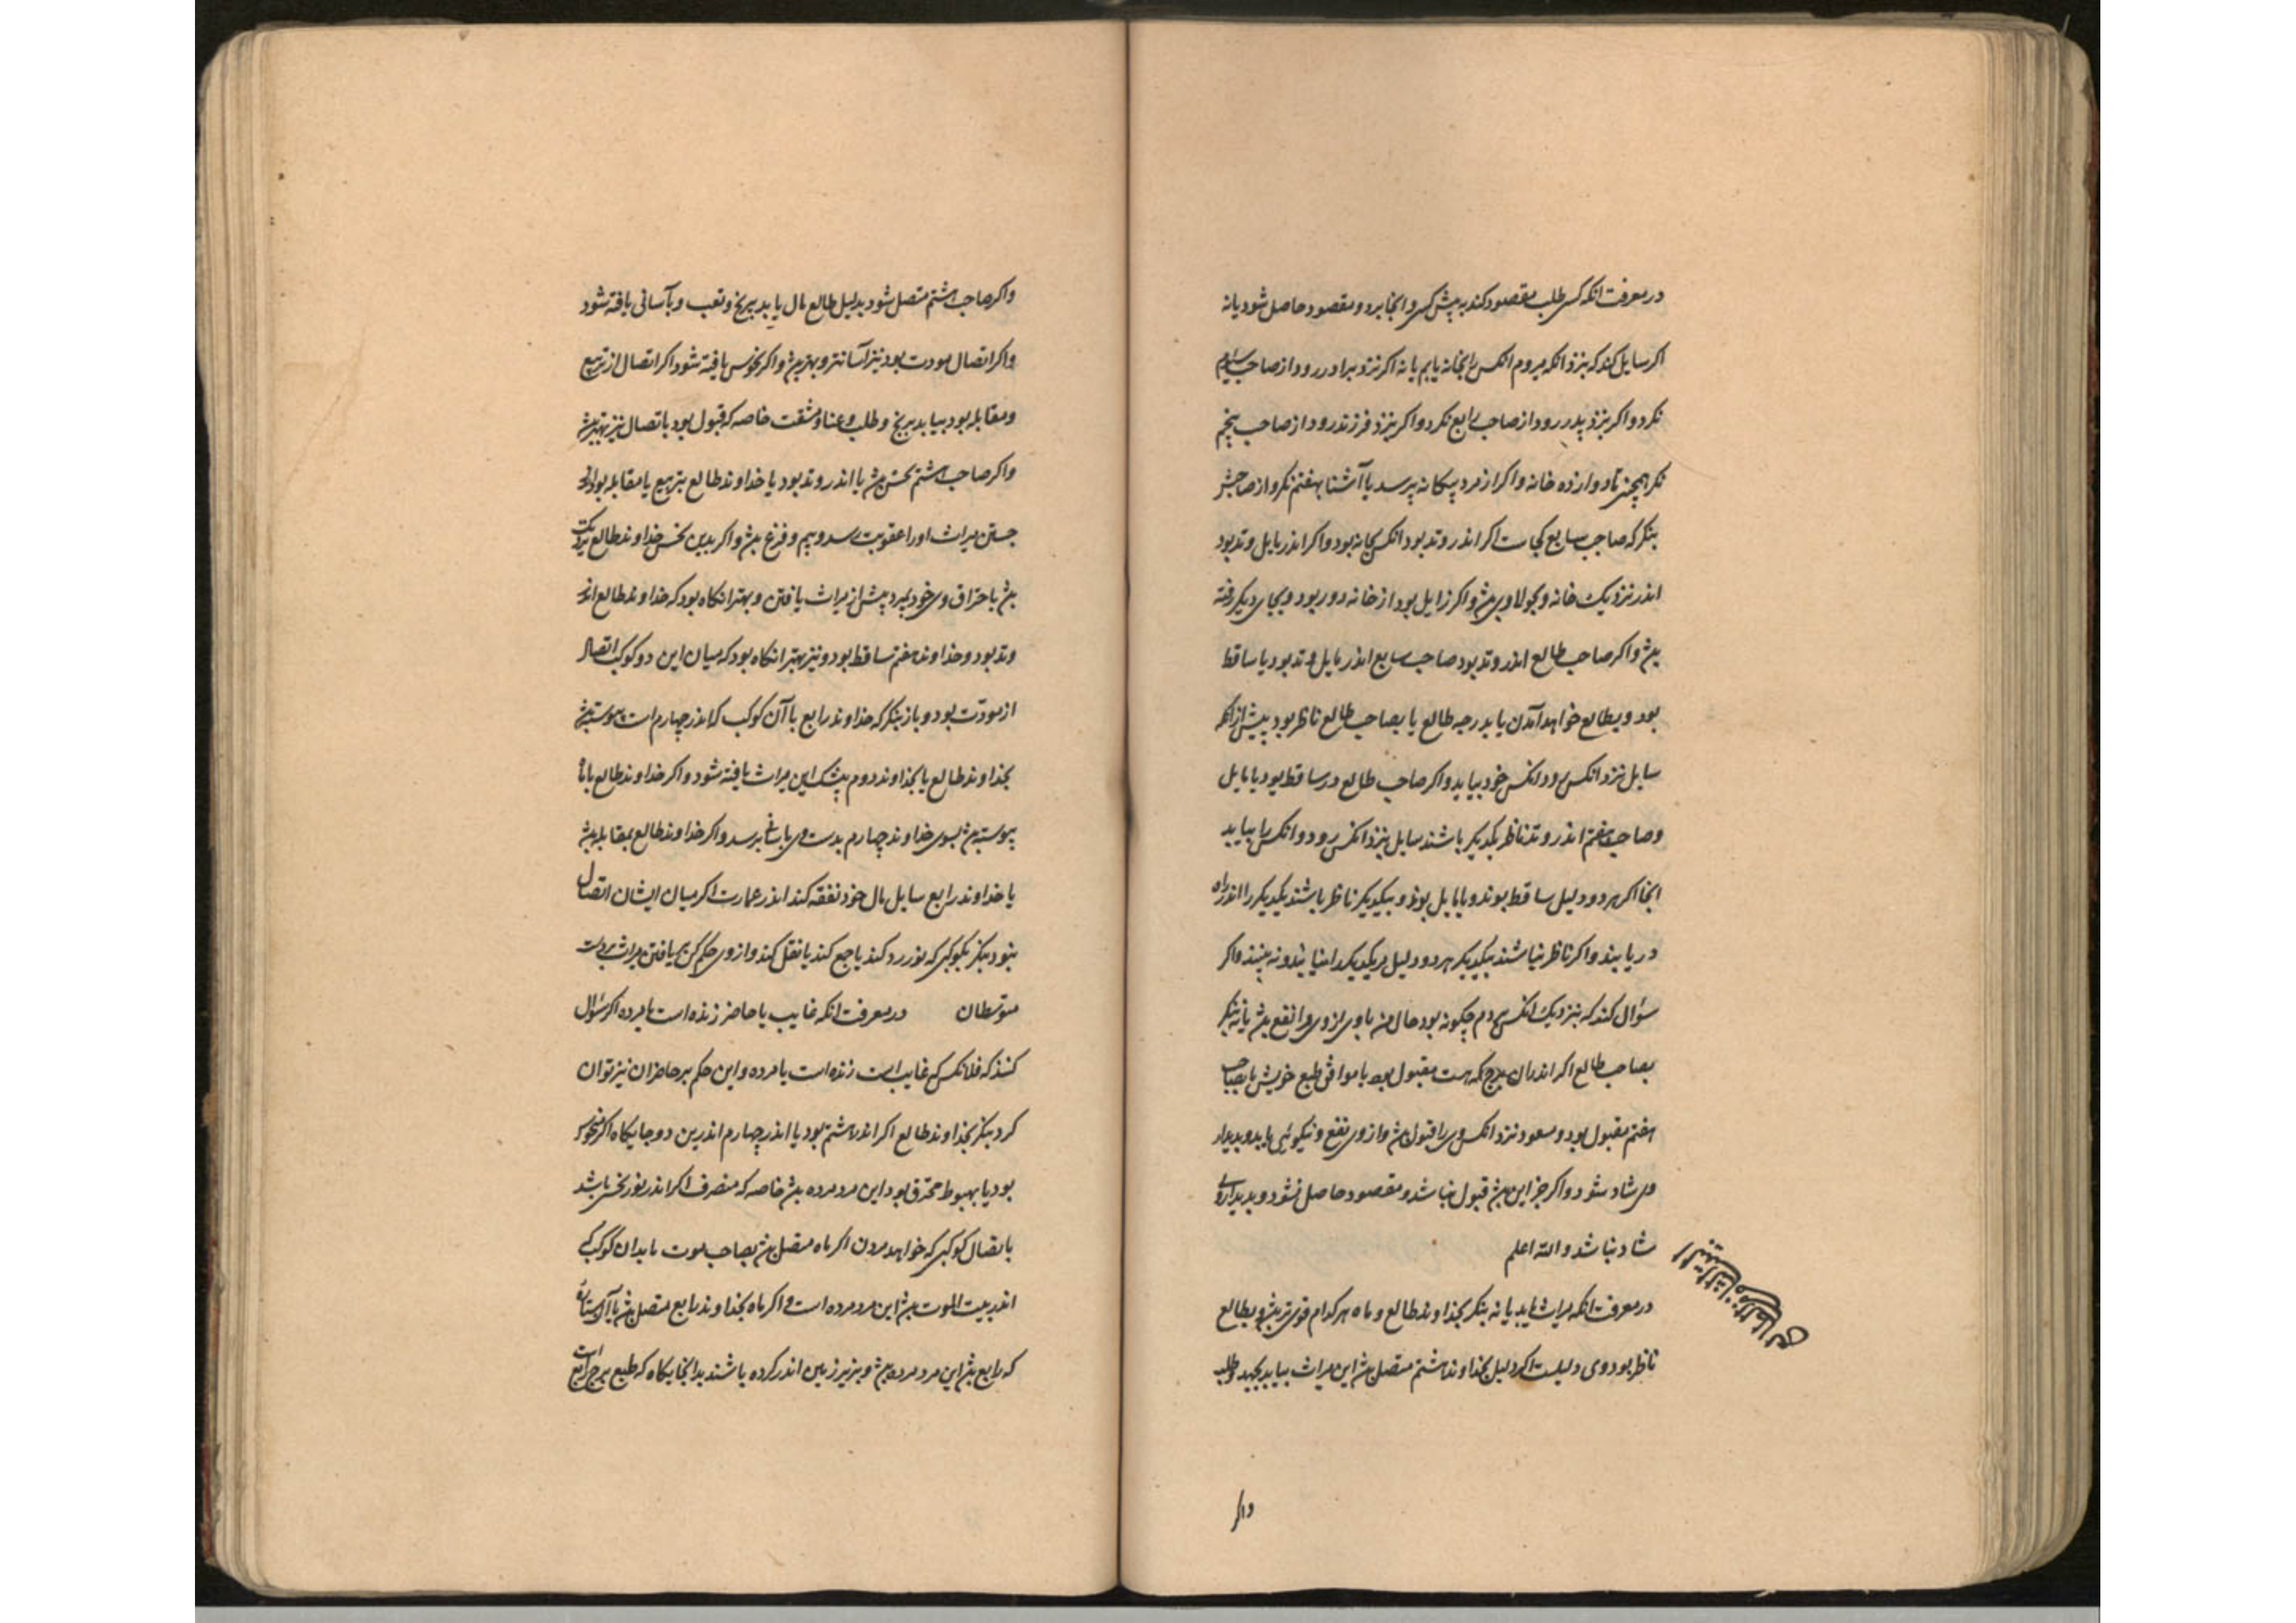 در معرفت آنکه کسی طلب مقصود کند به پیش کسی و آنجا برد و مقصود حاصل شود یا نه
اکر سایل کند که بنزد آنکه میروم انکس را بخانه یابم یا نه اکر نزد برادر رود از صاحب سیوم
نکرد و اکر بنزد پدر رود از صاحب رابع نکرد و اکر بنزد فرزند رود از صاحب پنجم
نکر همچنین تا دوازده خانه و اکر از مرد بیکانه پرسد یا آشنا بهفتم نکر و از صاحبش
بنکر که صاحب سابع کجاست اکر اندر وتد بود انکس بخانه بود و اکر اندر مایل وتد بود
اندر نزدیک خانه و بحوالا وی بش و اکر زایل بود از خانه دور بود و بجای دیکر رفته
بش و اکر صاحب طالع اندر وتد بود صاحب سابع اندر مایل وتد بود یا ساقط
بود و بطالع خواهد آمدن یا بدرجه طالع یا بصاحب طالع ناظر بود پیش از آنکه
سایل نزد انکس رود انکس خود بیاید و اکر صاحب طالع در ساقط بود یا مایل
و صاحب هفتم اندر وتد ناظر یکدیکر باشند سایل بنزد انکس رود و انکس را بیابد
اینجا اکر هر دو دلیل ساقط بوند و یا مایل بوند و بیکدیکر ناظر باشند یکدیکر را اندر راه
دریابند و اکر ناظر نباشند بیکدیکر هر دو دلیل مر یکدیکر را نیابند و نه بینند و اکر
سؤال کند که بنزدیک انکس دم چکونه بود حال من با وی از وی مرا نفع بش یا نه بنکر
بصاحب طالع اکر اندران برج که هست مقبول بود یا موافق طبع خویش یا بصاحب
هفتم مقبول بود و مسعود نزد انکس وی را قبول بش و از وی نفع و نیکوئی یابد و بدیدار
وی شاد شود و اکر جز این بش قبول نباشد و مقصود حاصل نشود و بدیدار وی
شاد نباشد والله اعلم
در معرفت آنکه میراث یابد یا نه بنکر بخداوند طالع و ماه هر کدام قوی تر بش و بطالع
ناظر بود وی دلیلست اکر دلیل بخداوند هشتم متصل بش این میراث بیابد بجهد و طلب
واکر
واکر صاحب هشتم متصل شود بدلیل طالع مال یابد بیرنج و تعب و بآسانی یافته شود
واکر اتصال مودت بود نیز آسانتر و بهتر بش و اکر نحوس یافته شود اکر اتصال از تربیع
و مقابله بود بیابد برنج و طلب و عنا و مشقت خاصه که قبول بود باتصال نیز بهتر بش
واکر صاحب هشتم نحس بش یا اندر وتد بود یا خداوند طالع بتربیع یا مقابله بود از
جستن میراث او را عقوبت رسد و بیم و فزع بش و اکر بدین نحس خداوند طالع نزدیک
بش باحتراق وی خود بمیرد پیش از میراث یافتن و بهتر انکاه بود که خداوند طالع اندر
وتد بود و خداوند هفتم ساقط بود و نیز بهتر انکاه بود که میان این دو کوکب اتصال
از مودّت بود و باز بنکر که خداوند رابع با آن کوکب که اندر چهارم است پیوسته بش
بخداوند طالع یا بخداوند دوم بیشک این میراث یافته شود و اکر خداوند طالع با ماه
پیوسته بش بسوی خداوند چهارم بدست وی باسانی برسد و اکر خداوند طالع بمقابله بش
یا خداوند رابع سایل مال خود نفقه کند اندر عمارت اکر میان ایشان اتصال
نبود بنکر بکوکبی که نور رد کند یا جمع کند یا نقل کند و از وی حکم کن بر یافتن میراث بر دست
متوسطان در معرفت آنکه غایب یا حاضر زنده است یا مرده اکر سؤال
کنند که فلانکس که غایب است زنده است یا مرده و این حکم بر حاضران نیز توان
کرد بنکر بخداوند طالع اکر اندر هشتم بود یا اندر چهارم اندرین دو جایکاه اکر منحوس
بود یا بهبوط محترق بود این مرد مرده بش خاصه که منصرف اکر اندر نور نحس باشد
باتصال کوکبی که خواهد مردن اکر ماه متصل بش بصاحب موت یا بدان کوکب که
اندر بیت الموت بش این مرد مرده است و اکر ماه بخداوند رابع متصل بش یا آن ستاره
که رابع بش این مرد مرده بش و بزیر زمین اندر کرده باشند بدانجایکاه که طبع برج رابع است